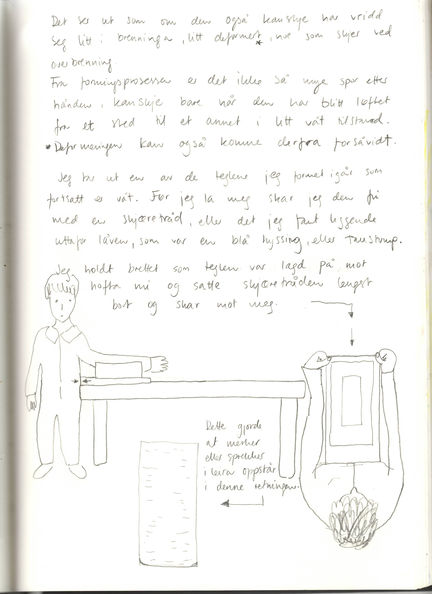 Det ser ut som om den også kanskje har vridd
seg litt i brenningen, litt deformert*, noe som skjer ved
overbrenning.
Fra formingsprosessen er det ikke så mye spor etter
hånden, kanskje bare når den har blitt løftet
fra et sted til et annet i litt våt tilstand.
* Deformeringen kan også komme derfra forsåvidt.
Jeg tar ut en av de teglene jeg formet igår som
fortsatt er våt. Før jeg la meg skar jeg den fri
med en skjæretråd, eller det jeg fant liggende
utafor låven, som var en blå hyssing, eller
Jeg holdt brettet som teglen var lagd på mot
hofta mi og satte skjæretråden lengst
bort og skar mot meg.
Dette gjorde
at merker
eller sprekker
i leira oppstår
i denne retningen.